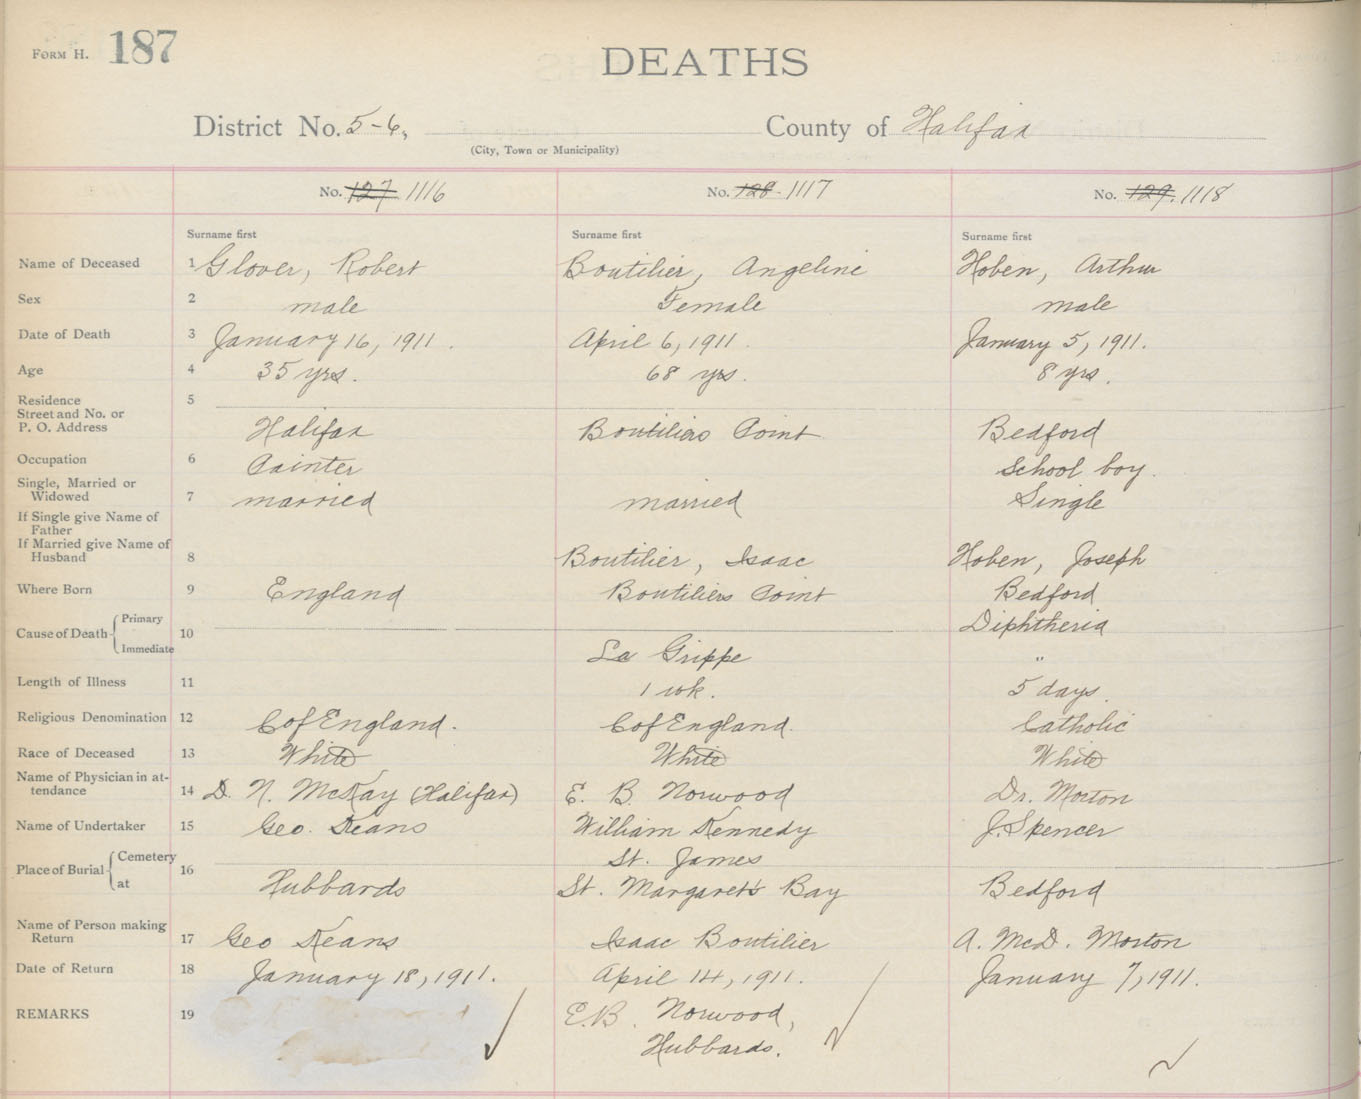 FORM H. 187
DEATHS
District No. 5-6, County of Halifax
(City, Town or Municipality)
No. 127. 1116 No. 128- 1117 No. 129. 1118
Surname first Surname first Surname first
Name of Deceased 1 Glover, Robert Boutilier, Angeline Hoben, Arthur
Sex 2 male Female male
Date of Death 3 January 16, 1911. April 6, 1911. January 5, 1911.
Age 4 35 yrs. 68 yrs. 8 yrs.
Residence 5
Street and No. or
P. O. Address Halifax Boutiliers Point Bedford
Occupation 6 Painter School boy.
Single, Married or
Widowed 7 married married Single
If Single give Name of
Father
If Married give Name of
Husband 8 Boutilier, Isaac Hoben, Joseph
Where Born 9 England Boutiliers Point Bedford
Cause of Death Primary 10 Diphtheria
Immediate La Grippe "
Length of Illness 11 1 wk. 5 days.
Religious Denomination 12 C of England. C of England. Catholic
Race of Deceased 13 White White White
Name of Physician in at-
tendance 14 D. N. McKay (Halifax) E. B. Norwood Dr. Morton
Name of Undertaker 15 Geo. Keans William Kennedy J. Spencer
Place of Burial Cemetery 16 St. James
at Hubbards St. Margaret's Bay Bedford
Name of Person making
Return 17 Geo Keans Isaac Boutilier A. McD. Morton
Date of Return 18 January 18, 1911. April 14, 1911. January 7, 1911.
REMARKS 19 E.B. Norwood,
Hubbards.